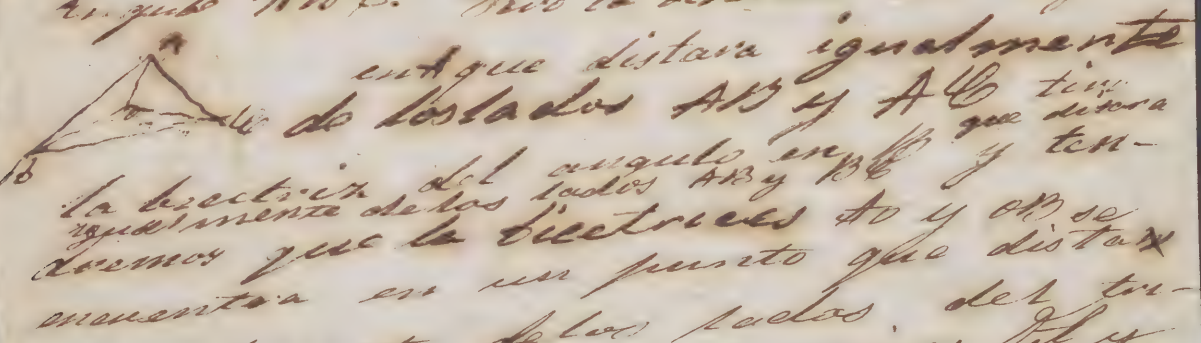 angulo
A
en A que distara igualmente
C de los lados AB y AC
B
que distara
la bicctriz del angulo en B y ten-
igualmente de los lados AB y BC
dremos que la bicctrices AO y OB se
encuentra en un punto que dista
de los lados del tri-